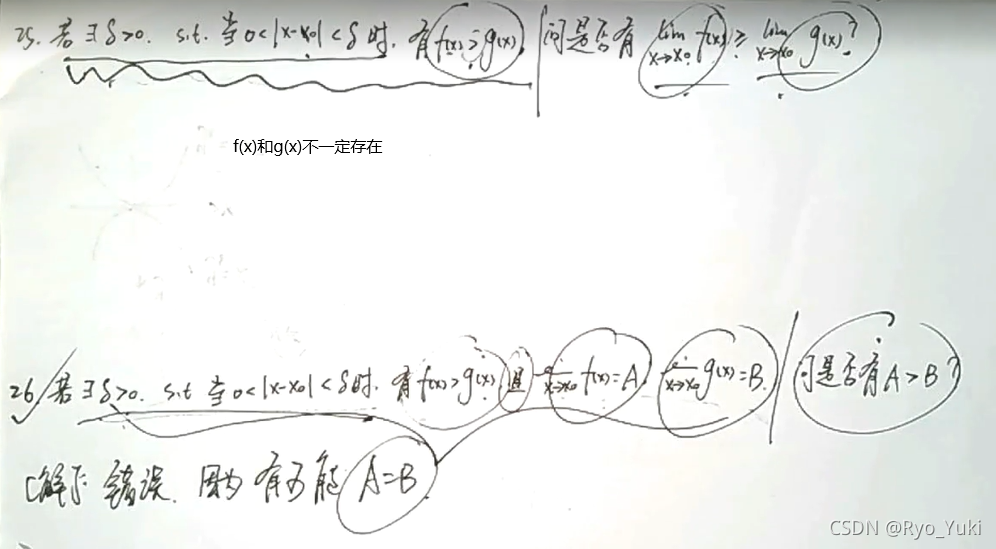 25. 若∃δ>0. s.t. 当0<|x-x₀|<δ时. 有f(x)≥g(x) 问是否有 lim x→x₀ f(x) ≥ lim x→x₀ g(x)?
f(x)和g(x)不一定存在
26. 若∃δ>0. s.t 当0<|x-x₀|<δ时. 有f(x)>g(x) 且 x→x₀ f(x)=A. x→x₀ g(x)=B. 问是否有A>B?
[解]: 错误. 因为有可能A=B.
CSDN @Ryo_Yuki